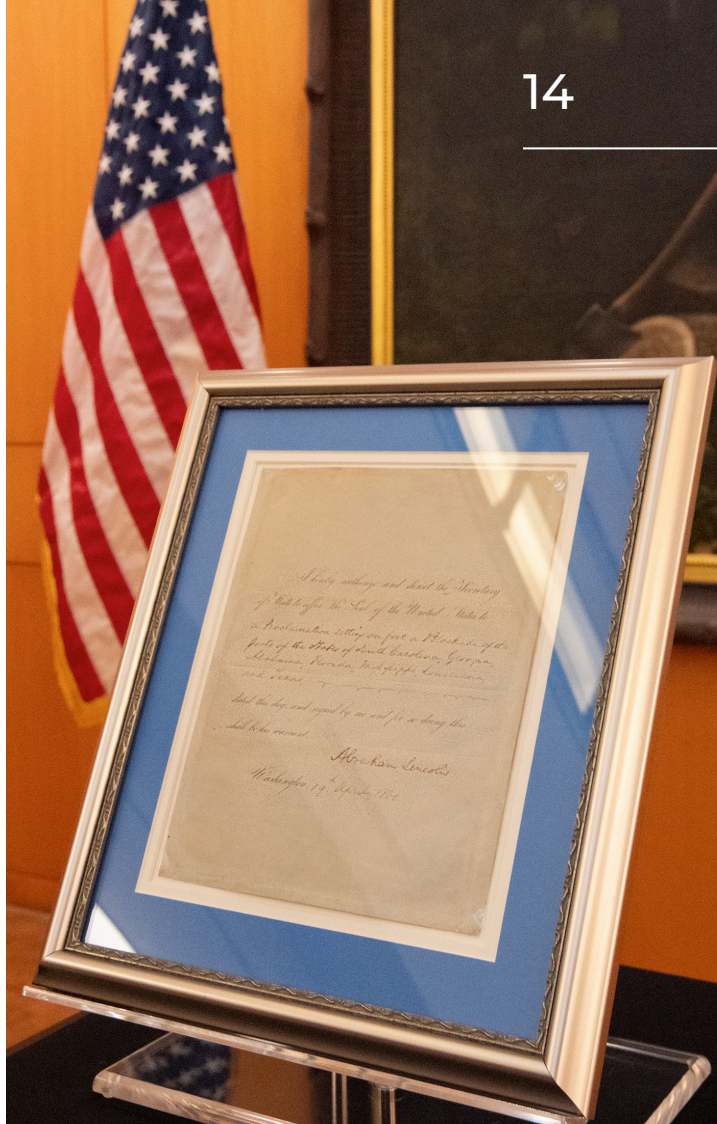 14
I hereby authorize and direct the Secretary
of State to affix the Seal of the United States to
a Proclamation setting on foot a Blockade of the
ports of the States of South Carolina, Georgia,
Alabama, Florida, Mississippi, Louisiana
and Texas
dated this day, and signed by me and for so doing this
shall be his warrant.
Abraham Lincoln
Washington, 19th April, 1861